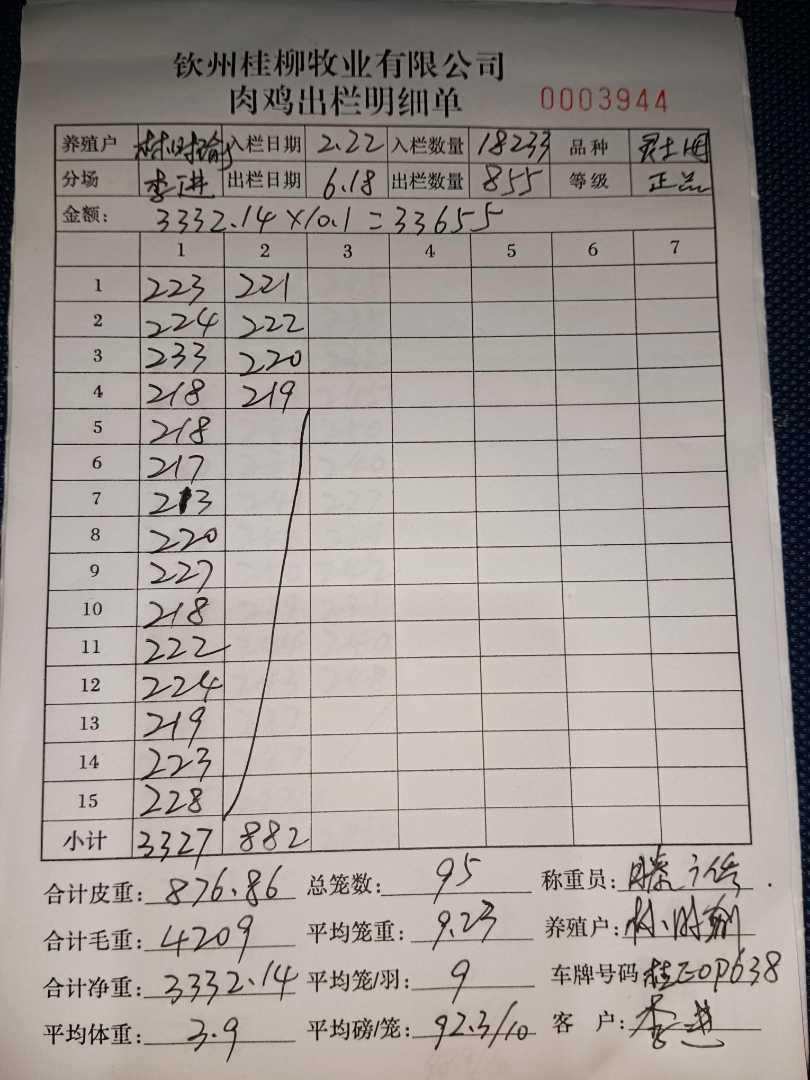 钦州桂柳牧业有限公司
肉鸡出栏明细单 0003944
养殖户 林时翰 入栏日期 2.22 入栏数量 18233 品种
分场 李进 出栏日期 6.18 出栏数量 855 等级 正品
金额: 3332.14×10.1=33655
1 2 3 4 5 6 7
1 223 221
2 224 222
3 233 220
4 218 219
5 218
6 217
7 213
8 220
9 227
10 218
11 222
12 224
13 219
14 223
15 228
小计 3327 882
合计皮重: 876.86 总笼数: 95 称重员:
合计毛重: 4209 平均笼重: 9.23 养殖户: 林时翰
合计净重: 3332.14 平均笼/羽: 9 车牌号码 桂E0P638
平均体重: 3.9 平均磅/笼: 92.3/10 客户: 李进